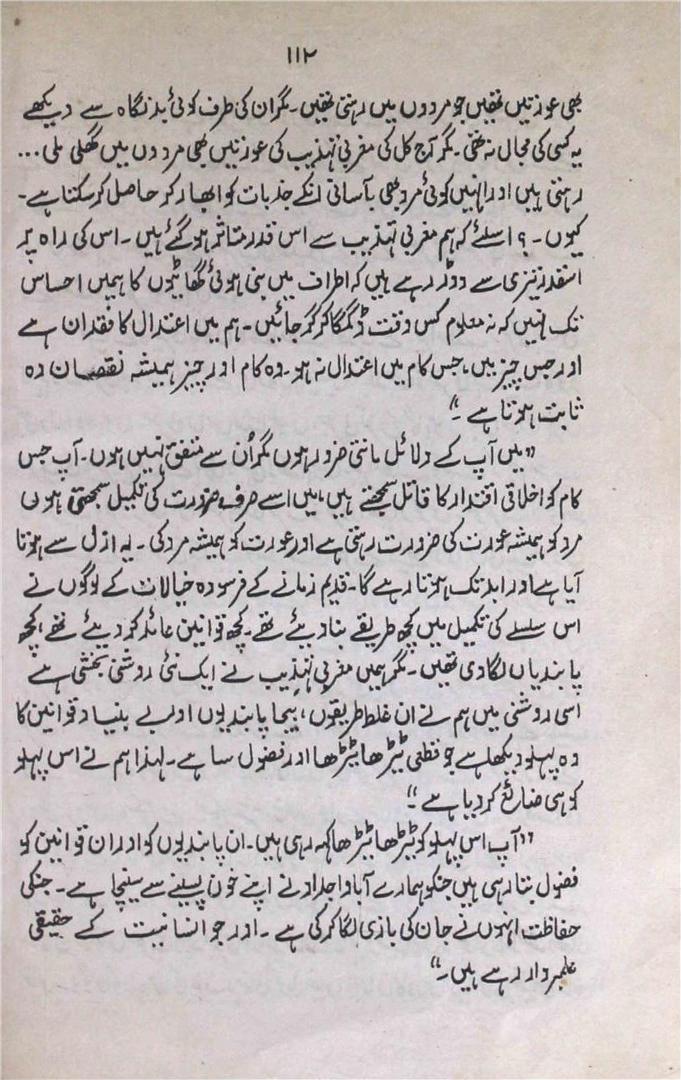 ۱۱۲
بھی عورتیں تھیں جو مردوں میں رہتی تھیں۔ مگر ان کی طرف کوئی بد نگاہ سے دیکھے
یہ کسی کی مجال نہ تھی۔ مگر آج کل کی مغربی تہذیب کی عورتیں بھی مردوں میں گھلی ملی...
رہتی ہیں اور انہیں کوئی مرد بھی بآسانی انکے جذبات کو ابھار کر حاصل کر سکتا ہے۔
کیوں۔؟ اسلئے کہ ہم مغربی تہذیب سے اس قدر متاثر ہو گئے ہیں۔ اس کی راہ پر
اسقدر تیزی سے دوڑ رہے ہیں کہ اطراف میں بنی ہوئی کھائیوں کا ہمیں احساس
تک نہیں کہ نہ معلوم کس وقت ڈگمگا کر گر جائیں۔ ہم میں اعتدال کا فقدان ہے
اور جس چیز میں، جس کام میں اعتدال نہ ہو۔ وہ کام اور چیز ہمیشہ نقصان دہ
ثابت ہوتا ہے۔"
"میں آپ کے دلائل مانتی ضرور ہوں مگر اُن سے متفق نہیں ہوں۔ آپ جس
کام کو اخلاقی اقتدار کا قاتل سمجھتے ہیں، میں اسے صرف ضرورت کی تکمیل سمجھتی ہوں
مرد کو ہمیشہ عورت کی ضرورت رہتی ہے اور عورت کو ہمیشہ مرد کی۔ یہ ازل سے ہوتا
آیا ہے اور ابد تک ہوتا رہے گا۔ قدیم زمانے کے فرسودہ خیالات کے لوگوں نے
اس سلسلے کی تکمیل میں کچھ طریقے بنا دیئے تھے۔ کچھ قوانین عائد کر دیئے تھے، کچھ
پابندیاں لگا دی تھیں۔ مگر ہمیں مغربی تہذیب نے ایک نئی روشنی بخشی ہے
اسی روشنی میں ہم نے ان غلط طریقوں، بیجا پابندیوں اور بے بنیاد قوانین کا
وہ پہلو دیکھا ہے جو قطعی ٹیڑھا ٹیڑھا اور فضول سا ہے۔ لہذا ہم نے اس پہلو
کو ہی ضائع کر دیا ہے۔"
"آپ اس پہلو کو ٹیڑھا ٹیڑھا کہہ رہی ہیں۔ ان پابندیوں کو اور ان قوانین کو
فضول بتا رہی ہیں جنکو ہمارے آباو اجداد نے اپنے خون پسینے سے سینچا ہے۔ جنکی
حفاظت انہوں نے جان کی بازی لگا کر کی ہے۔ اور جو انسانیت کے حقیقی
علمبردار رہے ہیں۔"